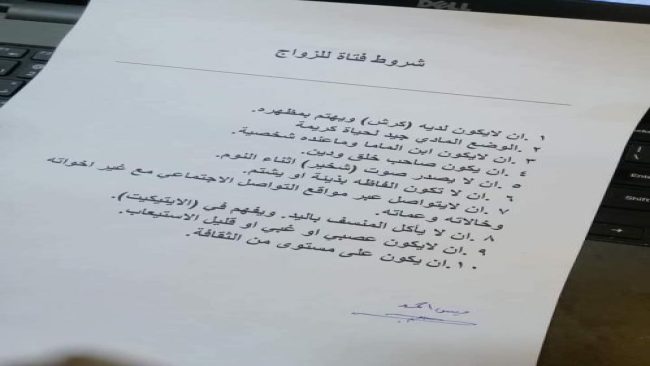 DELL
شروط فتاة للزواج
١ .ان لايكون لديه (كرش) ويهتم بمظهره.
٢ .الوضع المادي جيد لحياة كريمة
٣ .ان لايكون ابن الماما وماعنده شخصية.
٤ .ان يكون صاحب خلق ودين.
٥ .ان لا يصدر صوت (شخير) اثناء النوم.
٦ .ان لا تكون الفاظه بذيئة او يشتم.
٧ .ان لايتواصل عبر مواقع التواصل الاجتماعي مع غير اخواته
وخالاته وعماته.
٨ .ان لا يأكل المنسف باليد. ويفهم في (الايتيكيت).
٩ .ان لايكون عصبي او غبي او قليل الاستيعاب.
١٠ .ان يكون على مستوى من الثقافة.
Shift